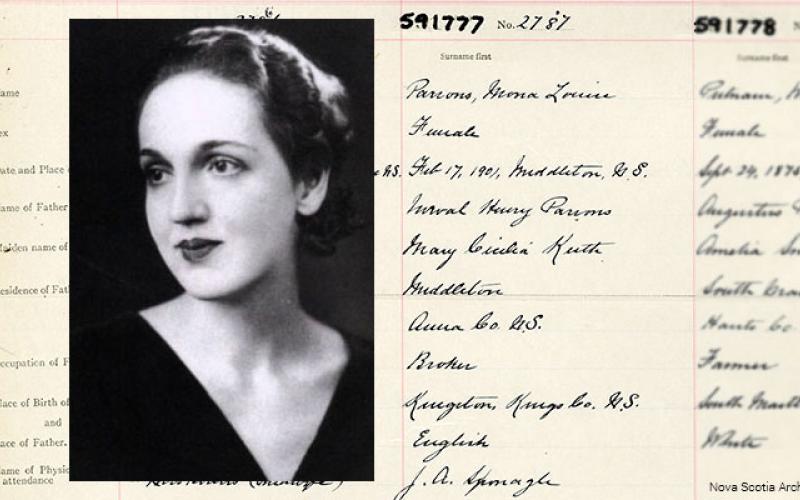 591777 No. 2787
591778 N
Surname first
Surname first
ame
Parsons, Mona Louise
Putnam,
ex
Female
Female
ate and Place
N.S.
Feb 17, 1901, Middleton, N.S.
Sept 24, 187
ame of Father
Norval Henry Parsons
Augustus
aiden name of
Mary Cicilia Keith
Amelia
esidence of Fat
Middleton
South
Anna Co. N.S.
Hants Co
ccupation of F
Broker
Farmer
lace of Birth of
Kingston, Kings Co. N.S.
South Maitl
and
ace of Father.
English
White
ame of Physic
attendance
J. A. Sponagle
Nova Scotia Arch